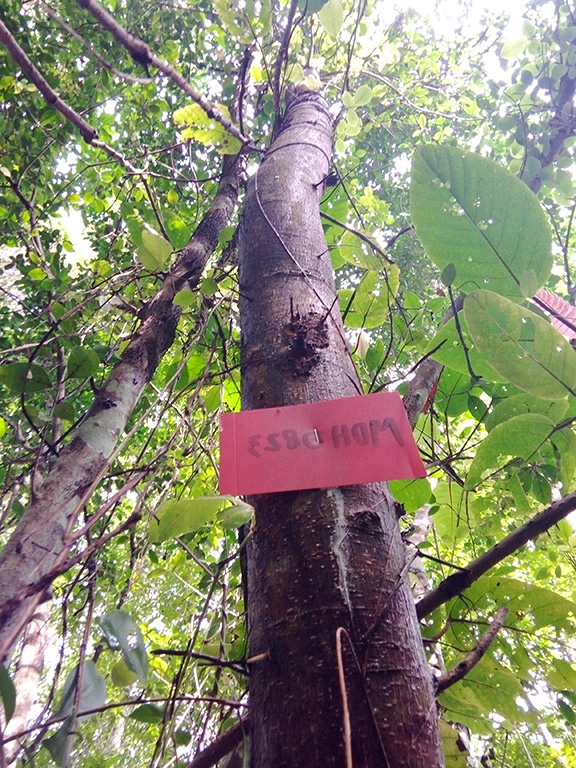 MDH 0823